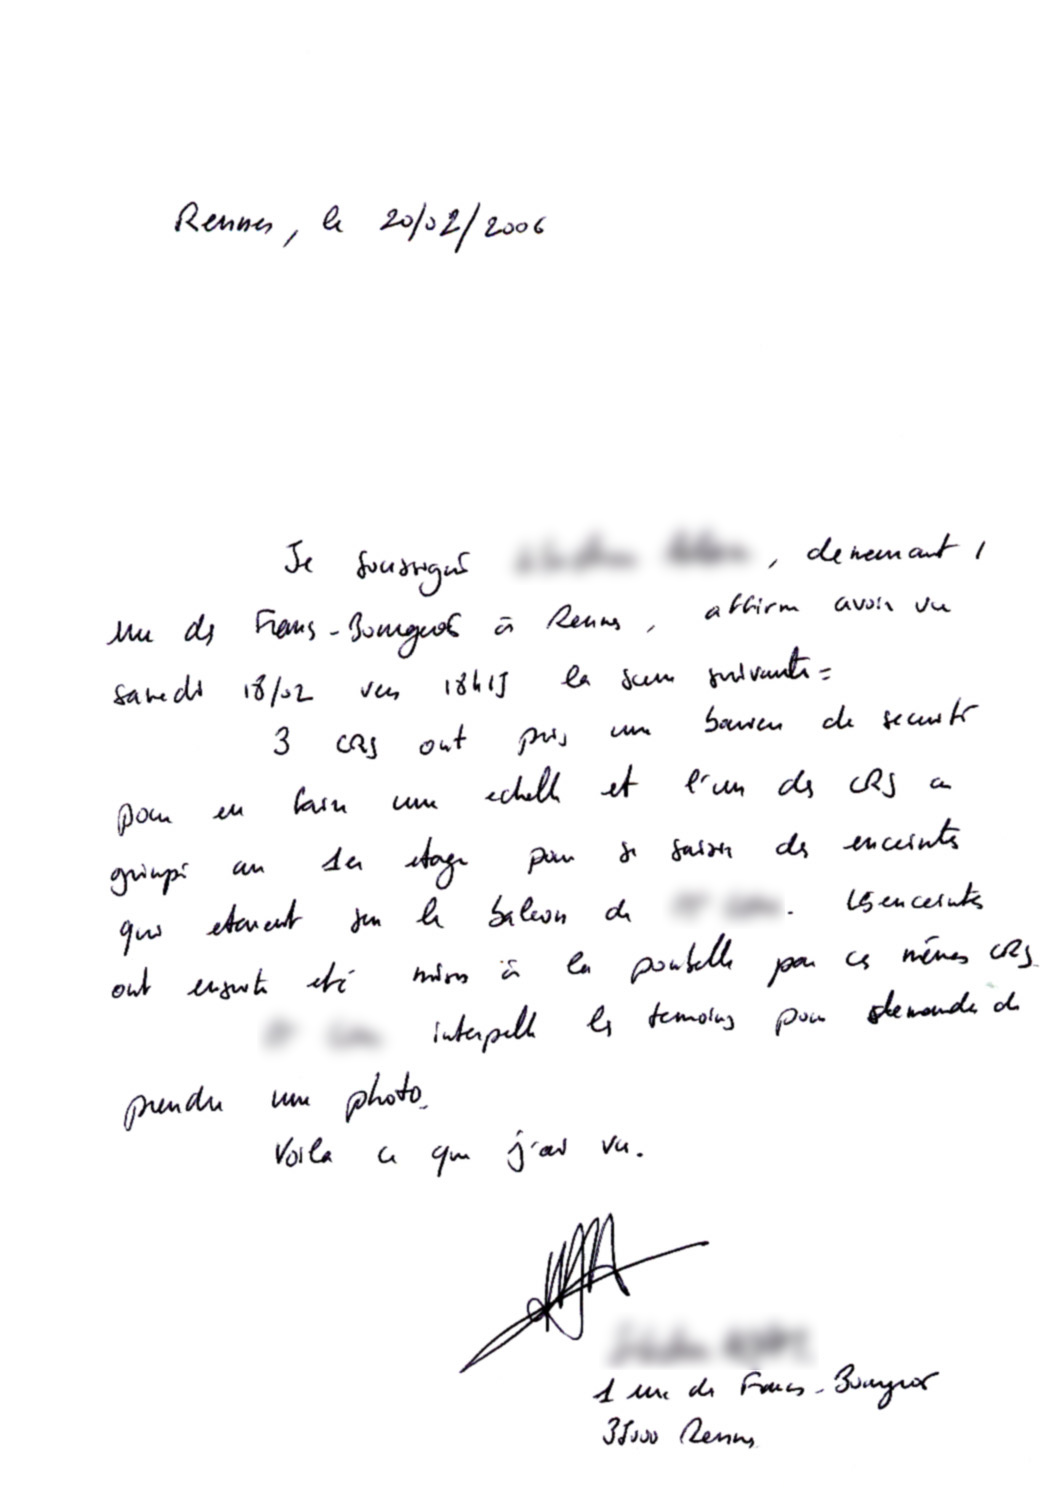 Rennes, le 20/02/2006
Je soussigné , demeurant 1
rue des Francs-Bourgeois à Rennes, affirme avoir vu
samedi 18/02 vers 18h15 la scene suivante :
3 CRS ont pris une barriere de securité
pour en faire une echelle et l'un des CRS a
grimpé au 1er etage pour se saisir des enceintes
qui etaient sur le balcon de . Les enceintes
ont ensuite eté mises à la poubelle par ces mêmes CRS.
interpelle les temoins pour demander de
prendre une photo.
Voila ce que j'ai vu.
1 rue des Francs-Bourgeois
35000 Rennes